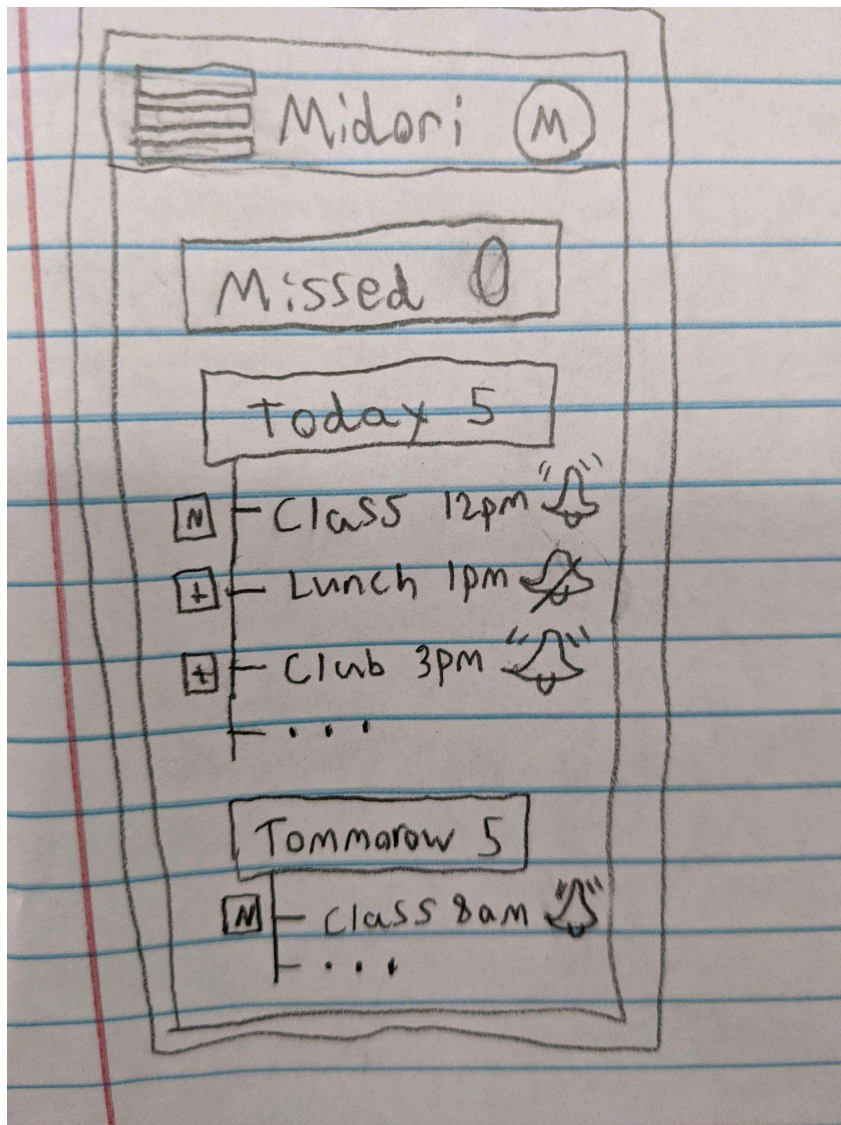 Midori M
Missed 0
Today 5
N Class 12pm
+ Lunch 1pm
+ Club 3pm
. . .
Tommarow 5
N Class 8am
. . .